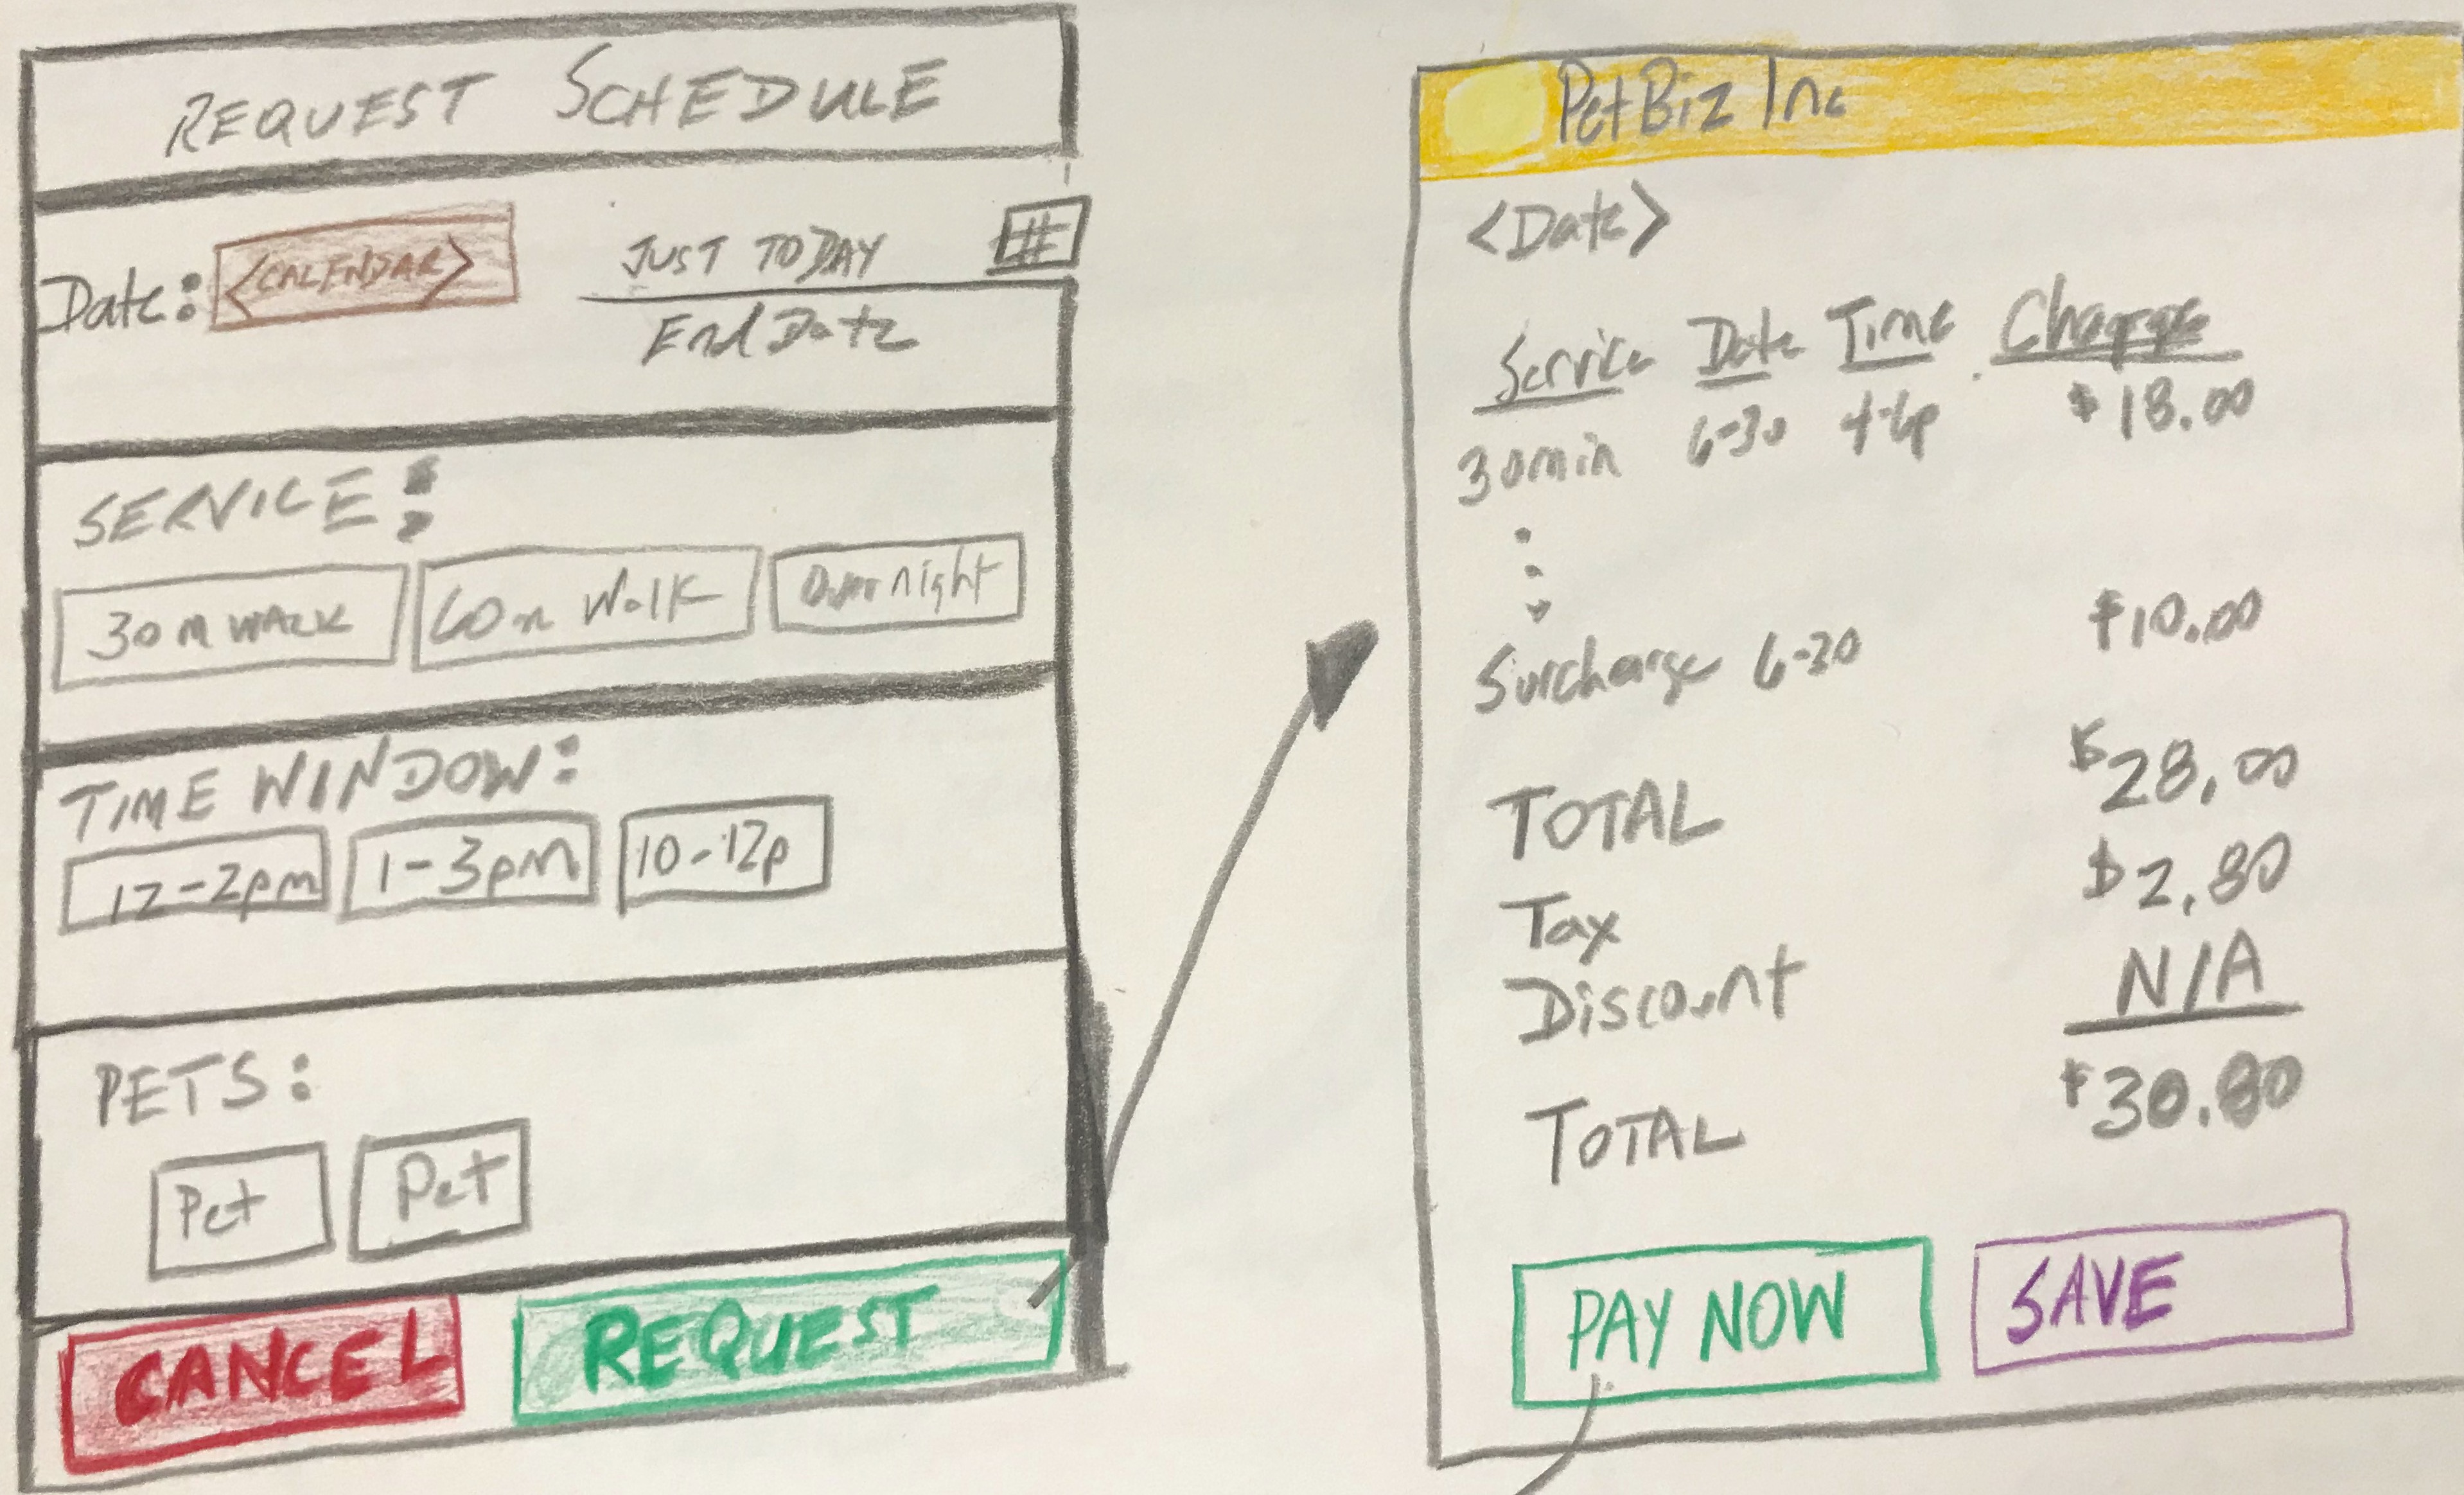 REQUEST SCHEDULE
Date: <CALENDAR> JUST TODAY #
End Date
SERVICE:
30 m WALK 60 m Walk Overnight
TIME WINDOW:
12-2pm 1-3pm 10-12p
PETS:
Pet Pet
CANCEL REQUEST
PetBiz Inc
<Date>
Service Date Time Charge
30min 6-30 4-6p $18.00
Surcharge 6-30 $10.00
TOTAL $28.00
Tax $2.80
Discount N/A
TOTAL $30.80
PAY NOW SAVE